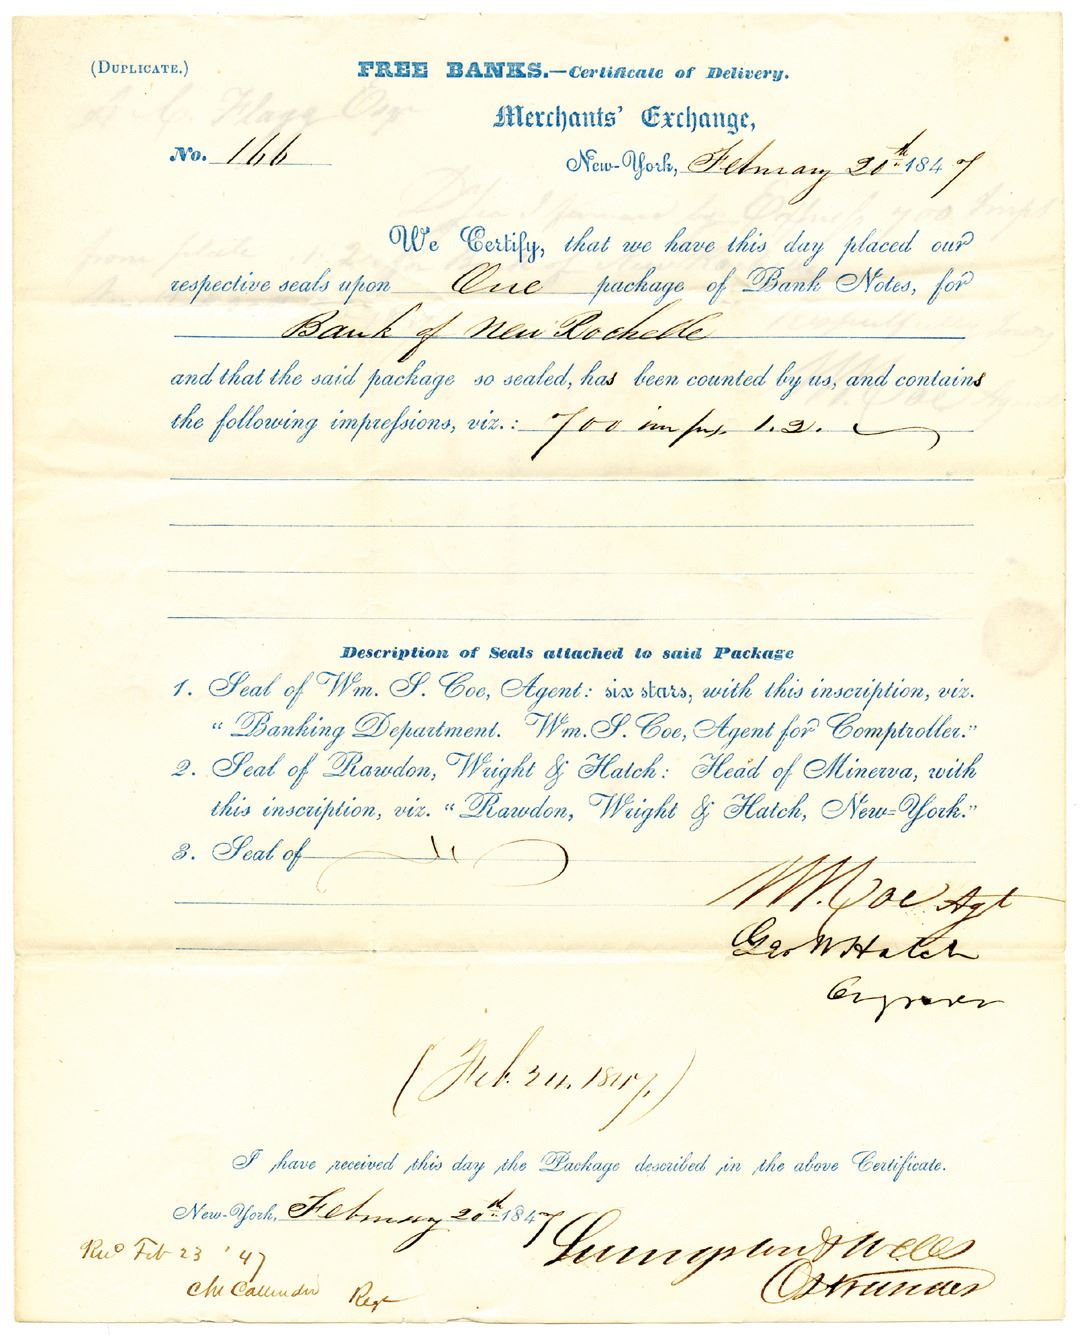 (Duplicate.)
FREE BANKS.—Certificate of Delivery.
Merchants' Exchange,
No. 166
New-York, February 20th 1847
We Certify, that we have this day placed our
respective seals upon One package of Bank Notes, for
Bank of New Rochelle
and that the said package so sealed, has been counted by us, and contains
the following impressions, viz.: 700 imps. 1.2.
Description of Seals attached to said Package
1. Seal of Wm. S. Coe, Agent: six stars, with this inscription, viz.
“Banking Department. Wm. S. Coe, Agent for Comptroller.”
2. Seal of Rawdon, Wright & Hatch: Head of Minerva, with
this inscription, viz. “Rawdon, Wright & Hatch, New-York.”
3. Seal of
W. Coe Agt
Geo W Hatch
Engraver
(Feb. 24. 1847.)
I have received this day the Package described in the above Certificate.
New-York, February 20th 1847
Livingston & Wells
Ostrander
Recd Feb 23 '47
Callender Regr